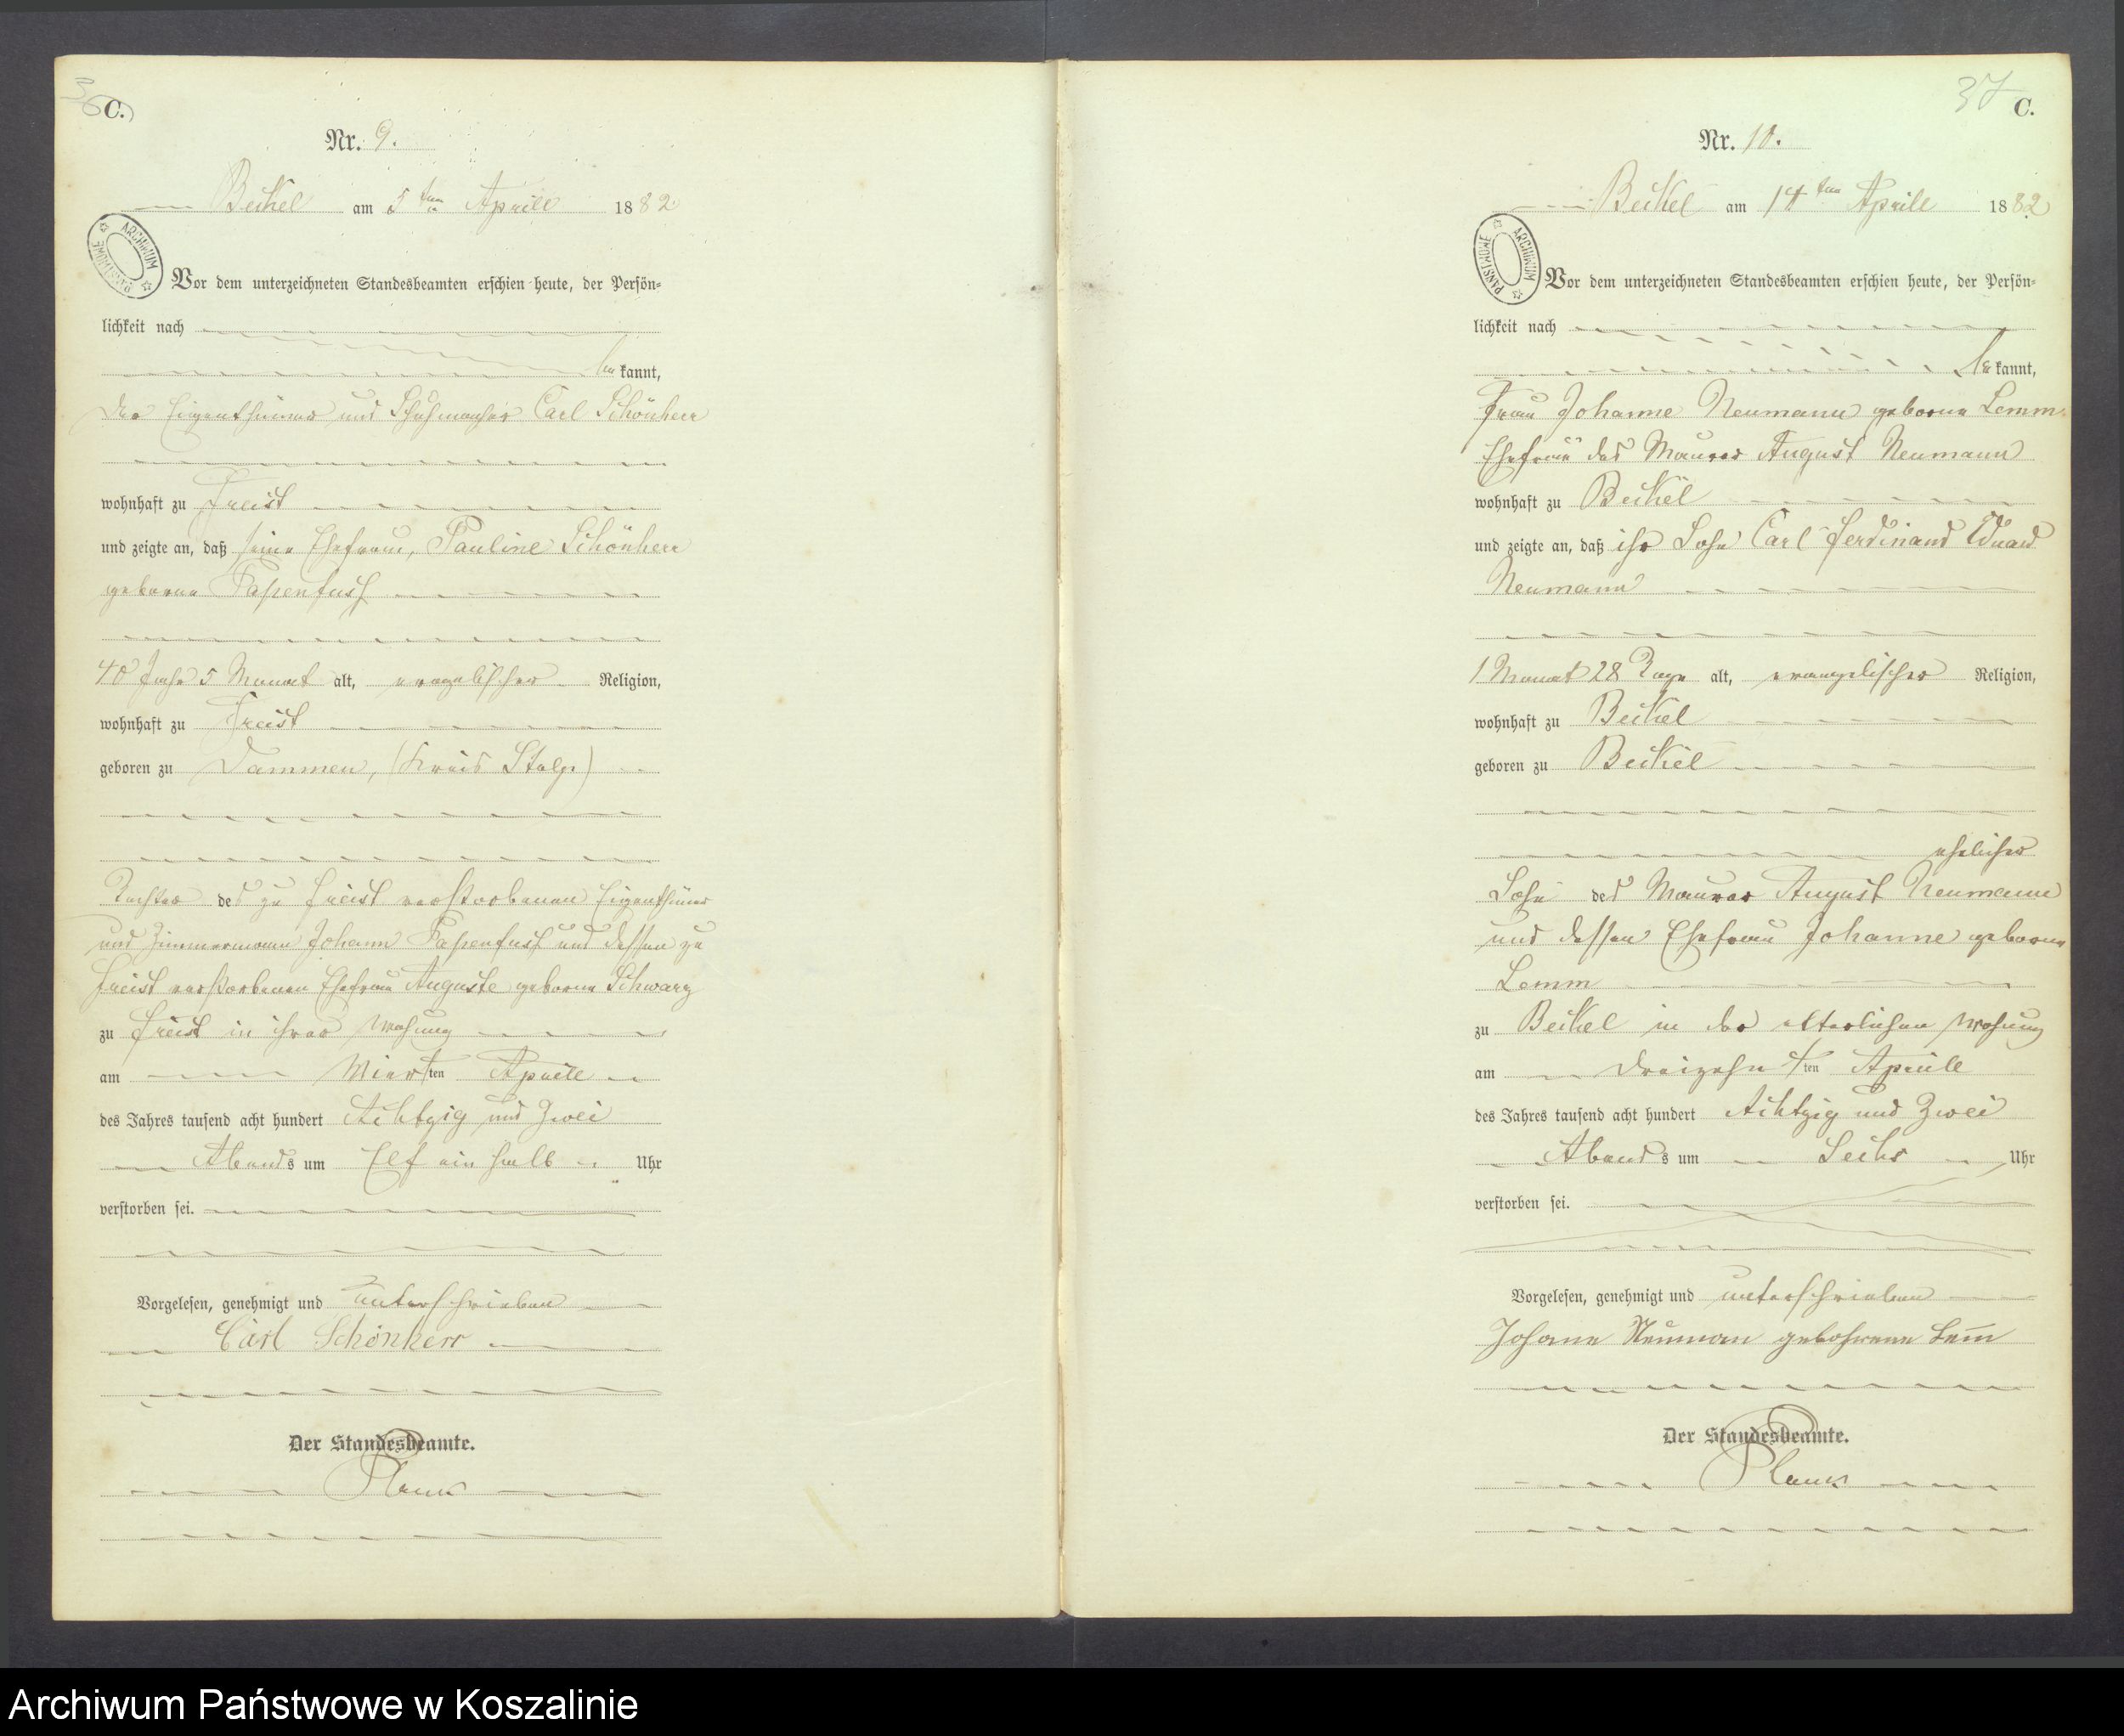 36
C.
Nr. 9.
Beckel am 5ten Aprill 1882
ARCHIWUM PAŃSTWOWE
Vor dem unterzeichneten Standesbeamten erschien heute, der Persön-
lichkeit nach
be kannt,
der Eigenthümer und Schuhmacher Carl Schönherr
wohnhaft zu Freist
und zeigte an, daß seine Ehefrau, Pauline Schönherr
geborne Papenfuss
40 Jahr 5 Monat alt, evangelischer Religion,
wohnhaft zu Freist
geboren zu Dammen, (Kreis Stolp)
Tochter des zu Freist verstorbenen Eigenthümer
und Zimmermann Johann Papenfuss und dessen zu
Freist verstorbenen Ehefrau Auguste geborne Schwarz
zu Freist in ihrer Wohnung
am Vierten Aprill
des Jahres tausend acht hundert Achtzig und Zwei
Abends um Elf ein halb Uhr
verstorben sei.
Vorgelesen, genehmigt und unterschrieben
Carl Schönherr
Der Standesbeamte.
37
C.
Nr. 10.
Beckel am 14ten Aprill 1882
ARCHIWUM PAŃSTWOWE
Vor dem unterzeichneten Standesbeamten erschien heute, der Persön-
lichkeit nach
be kannt,
Frau Johanne Neumann geborne Lemm
Ehefrau des Maurer August Neumann
wohnhaft zu Beckel
und zeigte an, daß ihr Sohn Carl Ferdinand Eduard
Neumann
1 Monat 28 Tage alt, evangelischer Religion,
wohnhaft zu Beckel
geboren zu Beckel
ehelicher
Sohn des Maurer August Neumann
und dessen Ehefrau Johanne geborne
Lemm
zu Beckel in der elterlichen Wohnung
am Dreizehnten Aprill
des Jahres tausend acht hundert Achtzig und Zwei
Abends um Sechs Uhr
verstorben sei.
Vorgelesen, genehmigt und unterschrieben
Johane Neuman gebohrene Lem̄
Der Standesbeamte.
Archiwum Państwowe w Koszalinie